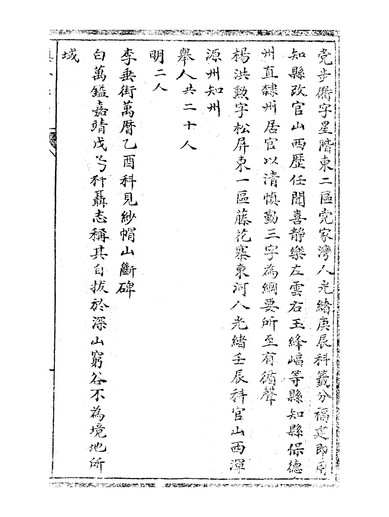 党步衢字星階東二區党家灣人光緒庚辰科籤分福建即用
知縣改官山西歷任聞喜靜樂左雲右玉絳嶂等縣知縣保德
州直隸州居官以清慎勤三字為綱要所至有循聲
楊洪勲字松屏東一區藤花寨東河人光緒壬辰科官山西渾
源州知州
舉人共二十人
明二人
李垂街萬曆乙酉科見紗帽山斷碑
白萬鎰嘉靖戊午科聶志稱其自拔於深山窮谷不為境地所
域